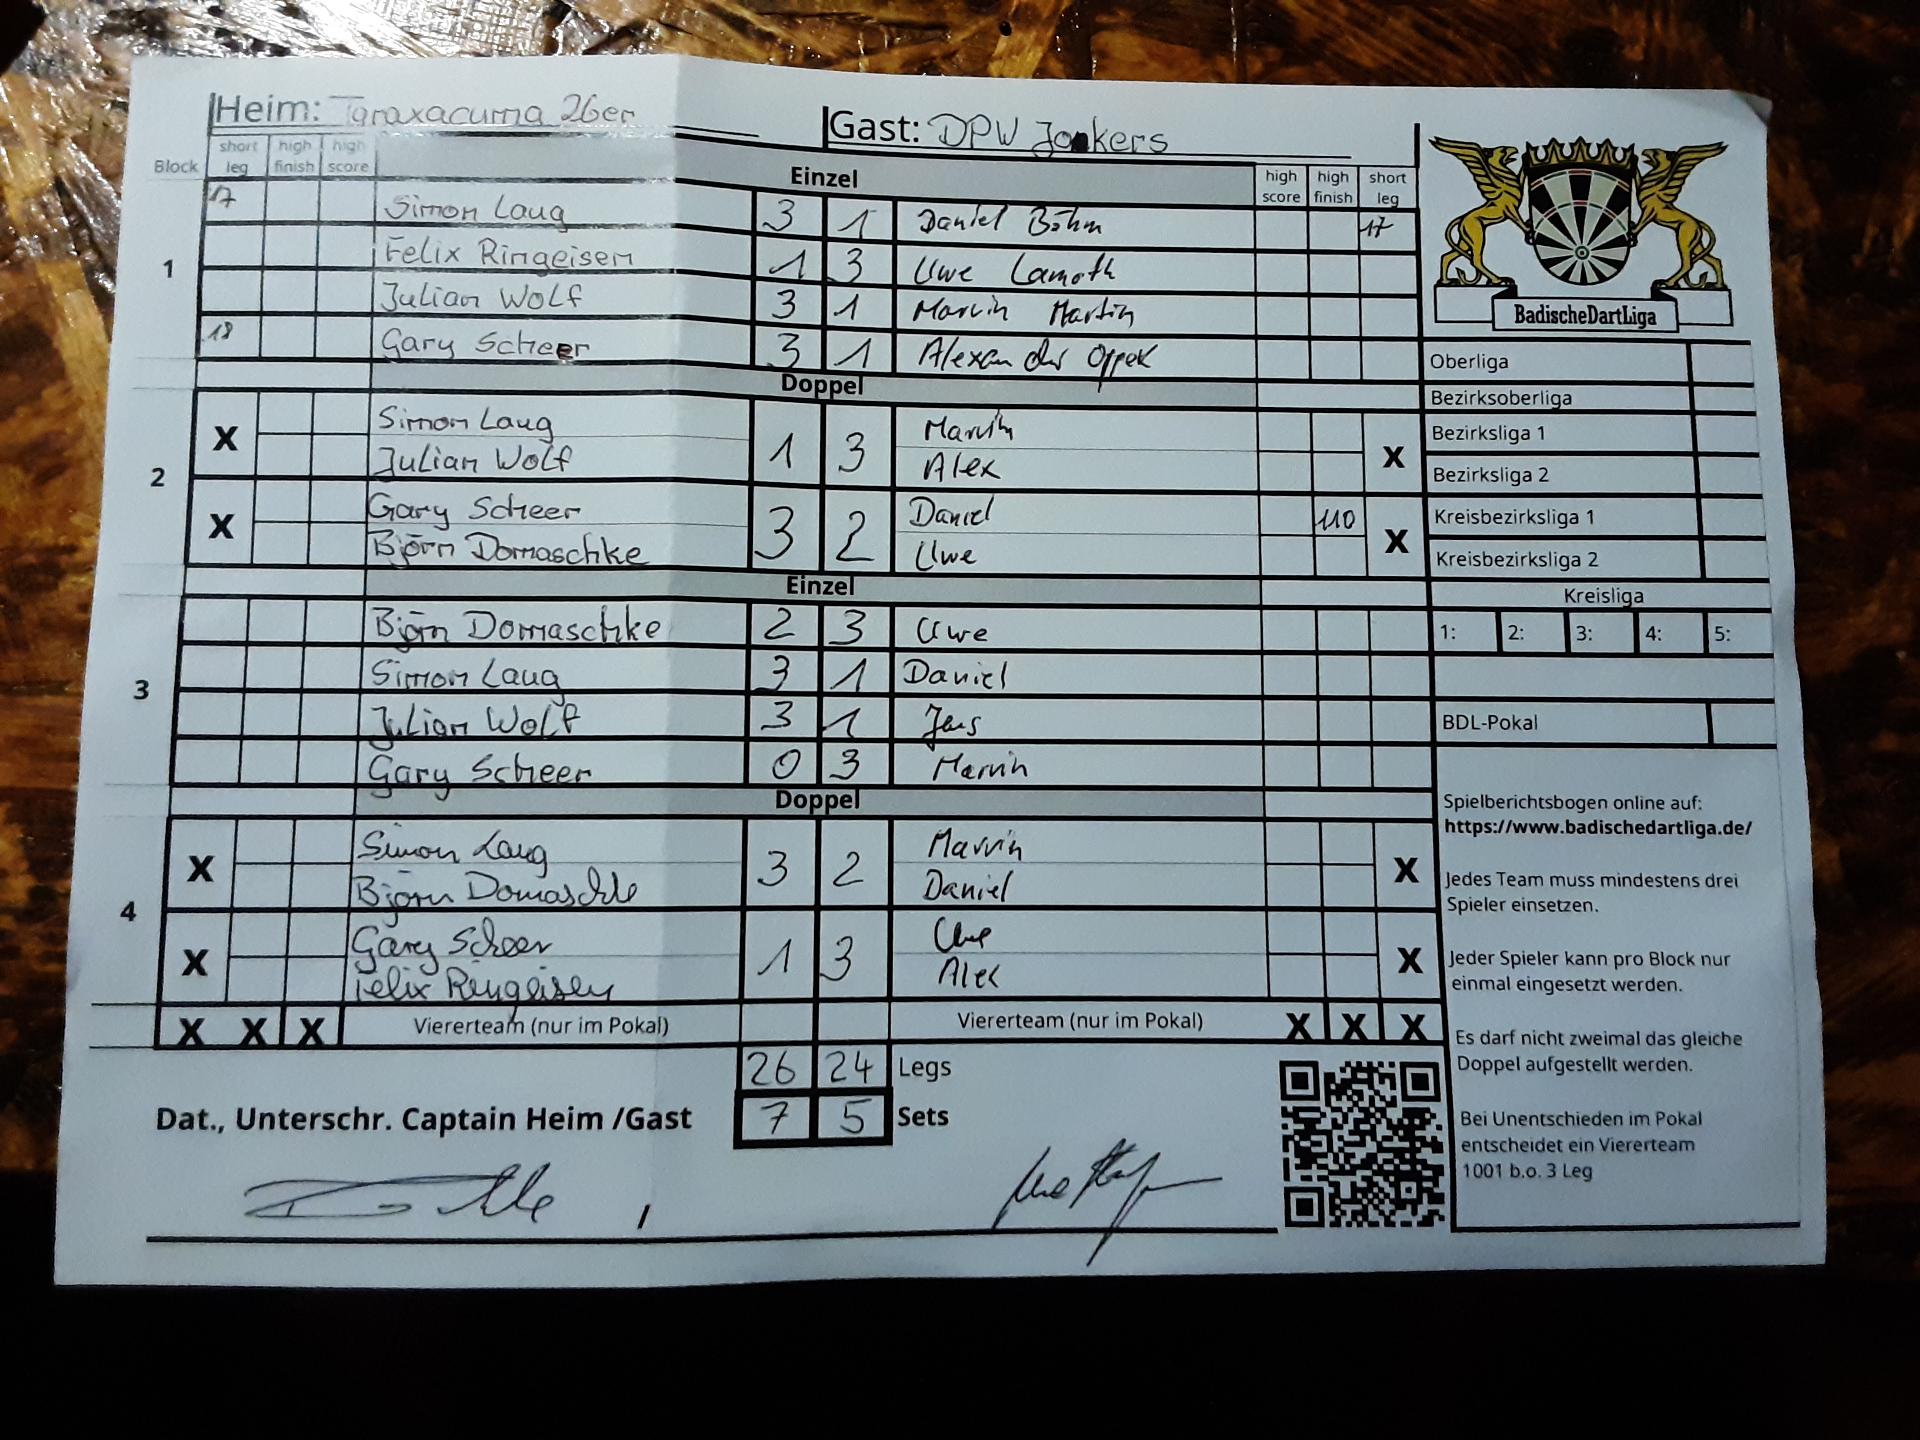 Heim: Taraxacuma 26er Gast: DPW Jokers
Block short leg high finish high score Einzel high score high finish short leg
1
17 Simon Laug 3 1 Daniel Böhm 17
Felix Ringeisen 1 3 Uwe Lamoth
Julian Wolf 3 1 Marvin Martin
18 Gary Scheer 3 1 Alexander Oppek
Doppel
2
X Simon Laug 1 3 Marvin X
Julian Wolf Alex
X Gary Scheer 3 2 Daniel 110 X
Björn Domaschke Uwe
Einzel
3
Björn Domaschke 2 3 Uwe
Simon Laug 3 1 Daniel
Julian Wolf 3 1 Jens
Gary Scheer 0 3 Marvin
Doppel
4
X Simon Laug 3 2 Marvin X
Björn Domaschke Daniel
X Gary Scheer 1 3 Uwe X
Felix Ringeisen Alex
X X X Viererteam (nur im Pokal) Viererteam (nur im Pokal) X X X
26 24 Legs
Dat., Unterschr. Captain Heim /Gast 7 5 Sets
BadischeDartLiga
Oberliga
Bezirksoberliga
Bezirksliga 1
Bezirksliga 2
Kreisbezirksliga 1
Kreisbezirksliga 2
Kreisliga
1: 2: 3: 4: 5:
BDL-Pokal
Spielberichtsbogen online auf:
https://www.badischedartliga.de/
Jedes Team muss mindestens drei
Spieler einsetzen.
Jeder Spieler kann pro Block nur
einmal eingesetzt werden.
Es darf nicht zweimal das gleiche
Doppel aufgestellt werden.
Bei Unentschieden im Pokal
entscheidet ein Viererteam
1001 b.o. 3 Leg